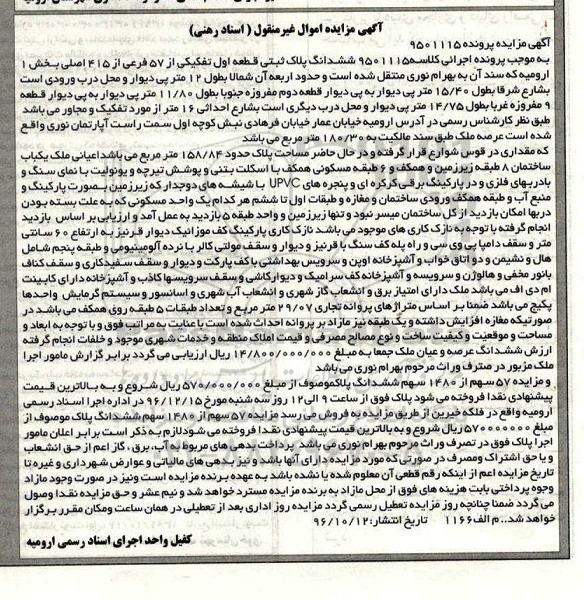 آگهی مزایده اموال غیرمنقول ( اسناد رهنی )
آگهی مزایده پرونده ۹۵۰۱۱۱۵
به موجب پرونده اجرائی کلاسه ۹۵۰۱۱۱۵ ششدانگ پلاک ثبتی قطعه اول تفکیکی از ۵۷ فرعی از ۴۱۵ اصلی بخش ۱
ارومیه که سند آن به بهرام نوری منتقل شده است و حدود اربعه آن شمالا بطول ۱۲ متر پی دیوار و محل درب ورودی است
بشارع شرقا بطول ۱۵/۴۰ متر پی دیوار به پی دیوار قطعه دوم مفروزه جنوبا بطول ۱۱/۸۰ متر پی دیوار به پی دیوار قطعه
۹ مفروزه غربا بطول ۱۴/۷۵ متر پی دیوار و محل درب دیگری است بشارع احداثی ۱۶ متر از مورد تفکیک و مجاور می باشد
طبق نظر کارشناس رسمی در آدرس ارومیه خیابان عمار خیابان فرهادی نبش کوچه اول سمت راست آپارتمان نوری واقع
شده است عرصه ملک طبق سند مالکیت به ۱۸۰/۳۰ متر مربع می باشد
که مقداری در قوس شوارع قرار گرفته و در حال حاضر مساحت پلاک حدود ۱۵۸/۸۴ متر مربع می باشد اعیانی ملک یکباب
ساختمان ۸ طبقه زیرزمین و همکف و ۶ طبقه مسکونی همکف با اسکلت بتنی و پوشش تیرچه و یونولیت با نمای سنگ و
بادربهای فلزی و در پارکینگ برقی کرکره ای و پنجره های UPVC با شیشه های دوجدار که زیرزمین بصورت پارکینگ و
منبع آب و طبقه همکف ورودی ساختمان و مغازه و طبقات اول تا ششم هر کدام یک واحد مسکونی که به علت بسته بودن
دربها امکان بازدید از کل ساختمان میسر نبود و تنها زیرزمین و واحد طبقه ۵ بازدید به عمل آمد و ارزیابی بر اساس بازدید
انجام گرفته با توجه به نازک کاری های موجود می باشد نازک کاری پارکینگ کف موزائیک دیوار قرنیز به ارتفاع ۶۰ سانتی
متر و سقف دامپا پی وی سی و راه پله کف سنگ با قرنیز و دیوار و سقف مولتی کالر با نرده آلومینیومی و طبقه پنجم شامل
هال و نشیمن و دو اتاق خواب و آشپزخانه اوپن و سرویس بهداشتی با کف پارکت و دیوار و سقف سفیدکاری و سقف کناف
بانور مخفی و هالوژن و سرویسه و آشپزخانه کف سرامیک و دیوارکاشی و سقف سرویسها کاذب و آشپزخانه دارای کابینت
ام دی اف می باشد ملک دارای امتیاز برق و انشعاب گاز شهری و انشعاب آب شهری و آسانسور و سیستم گرمایش واحدها
پکیج می باشد ضمنا بر اساس متراژهای پروانه تجاری ۲۹/۰۷ متر مربع و تعداد طبقات ۵ طبقه روی همکف می باشد در
صورتیکه مغازه افزایش داشته و یک طبقه نیز مازاد بر پروانه احداث شده است با عنایت به مراتب فوق و با توجه به ابعاد و
مساحت و موقعیت و کیفیت ساخت و نوع مصالح مصرفی و قیمت املاک منطقه و خدمات شهری موجود و خلفات انجام گرفته
ارزش ششدانگ عرصه و عیان ملک جمعا به مبلغ ۱۴/۸۰۰/۰۰۰/۰۰۰ ریال ارزیابی می گردد برابر گزارش مامور اجرا
ملک مزبور در صترف وراث مرحوم بهرام نوری می باشد
و مزایده ۵۷ سهم از ۱۴۸۰ سهم ششدانگ پلاکموصوف از مبلغ ۵۷۰/۰۰۰/۰۰۰ ریال شروع و به بالاترین قیمت
پیشنهادی نقدا فروخته می شود پلاک فوق از ساعت ۹ الی ۱۲ روز سه شنبه مورخ ۹۶/۱۲/۱۵ در اداره اجرا اسناد رسمی
ارومیه واقع در فلکه خیبرین از طریق مزایده به فروش می رسد مزایده ۵۷ سهم از ۱۴۸۰ سهم ششدانگ پلاک موصوف از
مبلغ ۵۷۰۰۰۰۰۰۰ ریال شروع و به بالاترین قیمت پیشنهادی نقدا فروخته می شود لازم به ذکر است برابر اعلان مامور
اجرا پلاک فوق در تصرف وراث مرحوم بهرام نوری می باشد پرداخت بدهی های مربوط به آب، برق ، گاز اعم از حق انشعاب
و یا حق اشتراک ومصرف در صورتی که مورد مزایده دارای آنها باشد و نیز بدهی های مالیاتی و عوارض شهرداری و غیره تا
تاریخ مزایده اعم از اینکه رقم قطعی آن معلوم شده یا نشده باشد به عهده برنده مزایده است ونیز در صورت وجود مازاد
وجوه پرداختی بابت هزینه های فوق از محل مازاد به برنده مزایده مسترد خواهد شد و نیم عشر و حق مزایده نقدا وصول
می گردد ضمنا چنانچه روز مزایده تعطیل رسمی گردد مزایده روز اداری بعد از تعطیلی در همان ساعت ومکان مقرر برگزار
خواهد شد..م الف ۱۱۶۶ تاریخ انتشار: ۹۶/۱۰/۱۲
کفیل واحد اجرای اسناد رسمی ارومیه